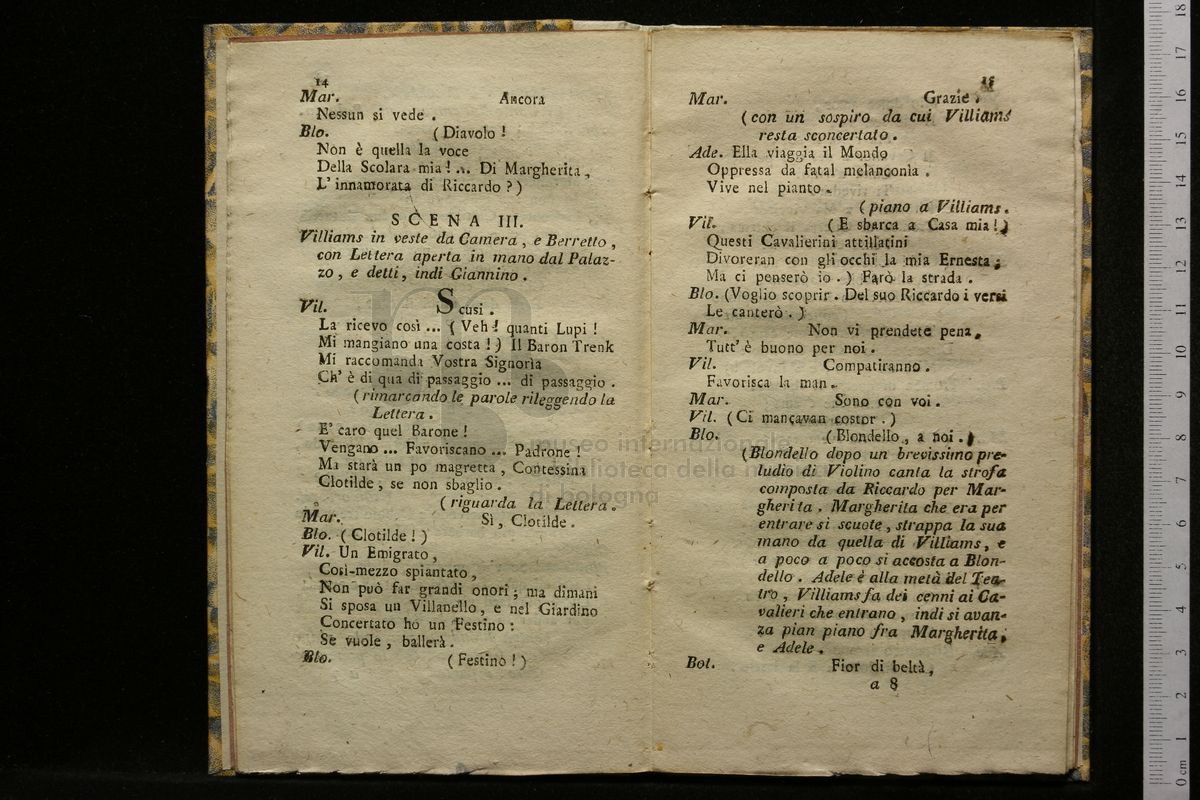 14
Mar. Ancora
Nessun si vede .
Blo. ( Diavolo !
Non è quella la voce
Della Scolara mia ! ... Di Margherita ,
L' innamorata di Riccardo ? )
SCENA III.
Villiams in veste da Camera , e Berretto ,
con Lettera aperta in mano dal Palaz-
zo , e detti , indi Giannino .
Vil. Scusi .
La ricevo così ... ( Veh ! quanti Lupi !
Mi mangiano una costa ! ) Il Baron Trenk
Mi raccomanda Vostra Signorìa
Ch' è di qua di passaggio ... di passaggio .
( rimarcando le parole rileggendo la
Lettera .
E' caro quel Barone !
Vengano ... Favoriscano ... Padrone !
Ma starà un po magretta , Contessina
Clotilde , se non sbaglio .
( riguarda la Lettera .
Mar. Sì , Clotilde .
Blo. ( Clotilde ! )
Vil. Un Emigrato ,
Così-mezzo spiantato ,
Non può far grandi onori ; ma dimani
Si sposa un Villanello , e nel Giardino
Concertato ho un Festino :
Se vuole , ballerà .
Blo. ( Festino ! )
15
Mar. Grazie .
( con un sospiro da cui Villiams
resta sconcertato .
Ade. Ella viaggia il Mondo
Oppressa da fatal melanconìa .
Vive nel pianto .
( piano a Villiams .
Vil. ( E sbarca a Casa mia ! )
Questi Cavalierini attillatini
Divoreran con gli occhi la mia Ernesta ;
Ma ci penserò io . ) Farò la strada .
Blo. (Voglio scoprir . Del suo Riccardo i versi
Le canterò . )
Mar. Non vi prendete pena ,
Tutt' è buono per noi .
Vil. Compatiranno .
Favorisca la man .
Mar. Sono con voi .
Vil. ( Ci mancavan costor . )
Blo. ( Blondello , a noi . )
( Blondello dopo un brevissimo pre-
ludio di Violino canta la strofa
composta da Riccardo per Mar-
gherita . Margherita che era per
entrare si scuote , strappa la sua
mano da quella di Villiams , e
a poco a poco si accosta a Blon-
dello . Adele è alla metà del Tea-
tro , Villiams fa dei cenni ai Ca-
valieri che entrano , indi si avan-
za pian piano fra Margherita ,
e Adele .
Bol. Fior di beltà ,
a 8
museo internazionale
biblioteca della
di bologna
0 cm 1 2 3 4 5 6 7 8 9 10 11 12 13 14 15 16 17 18